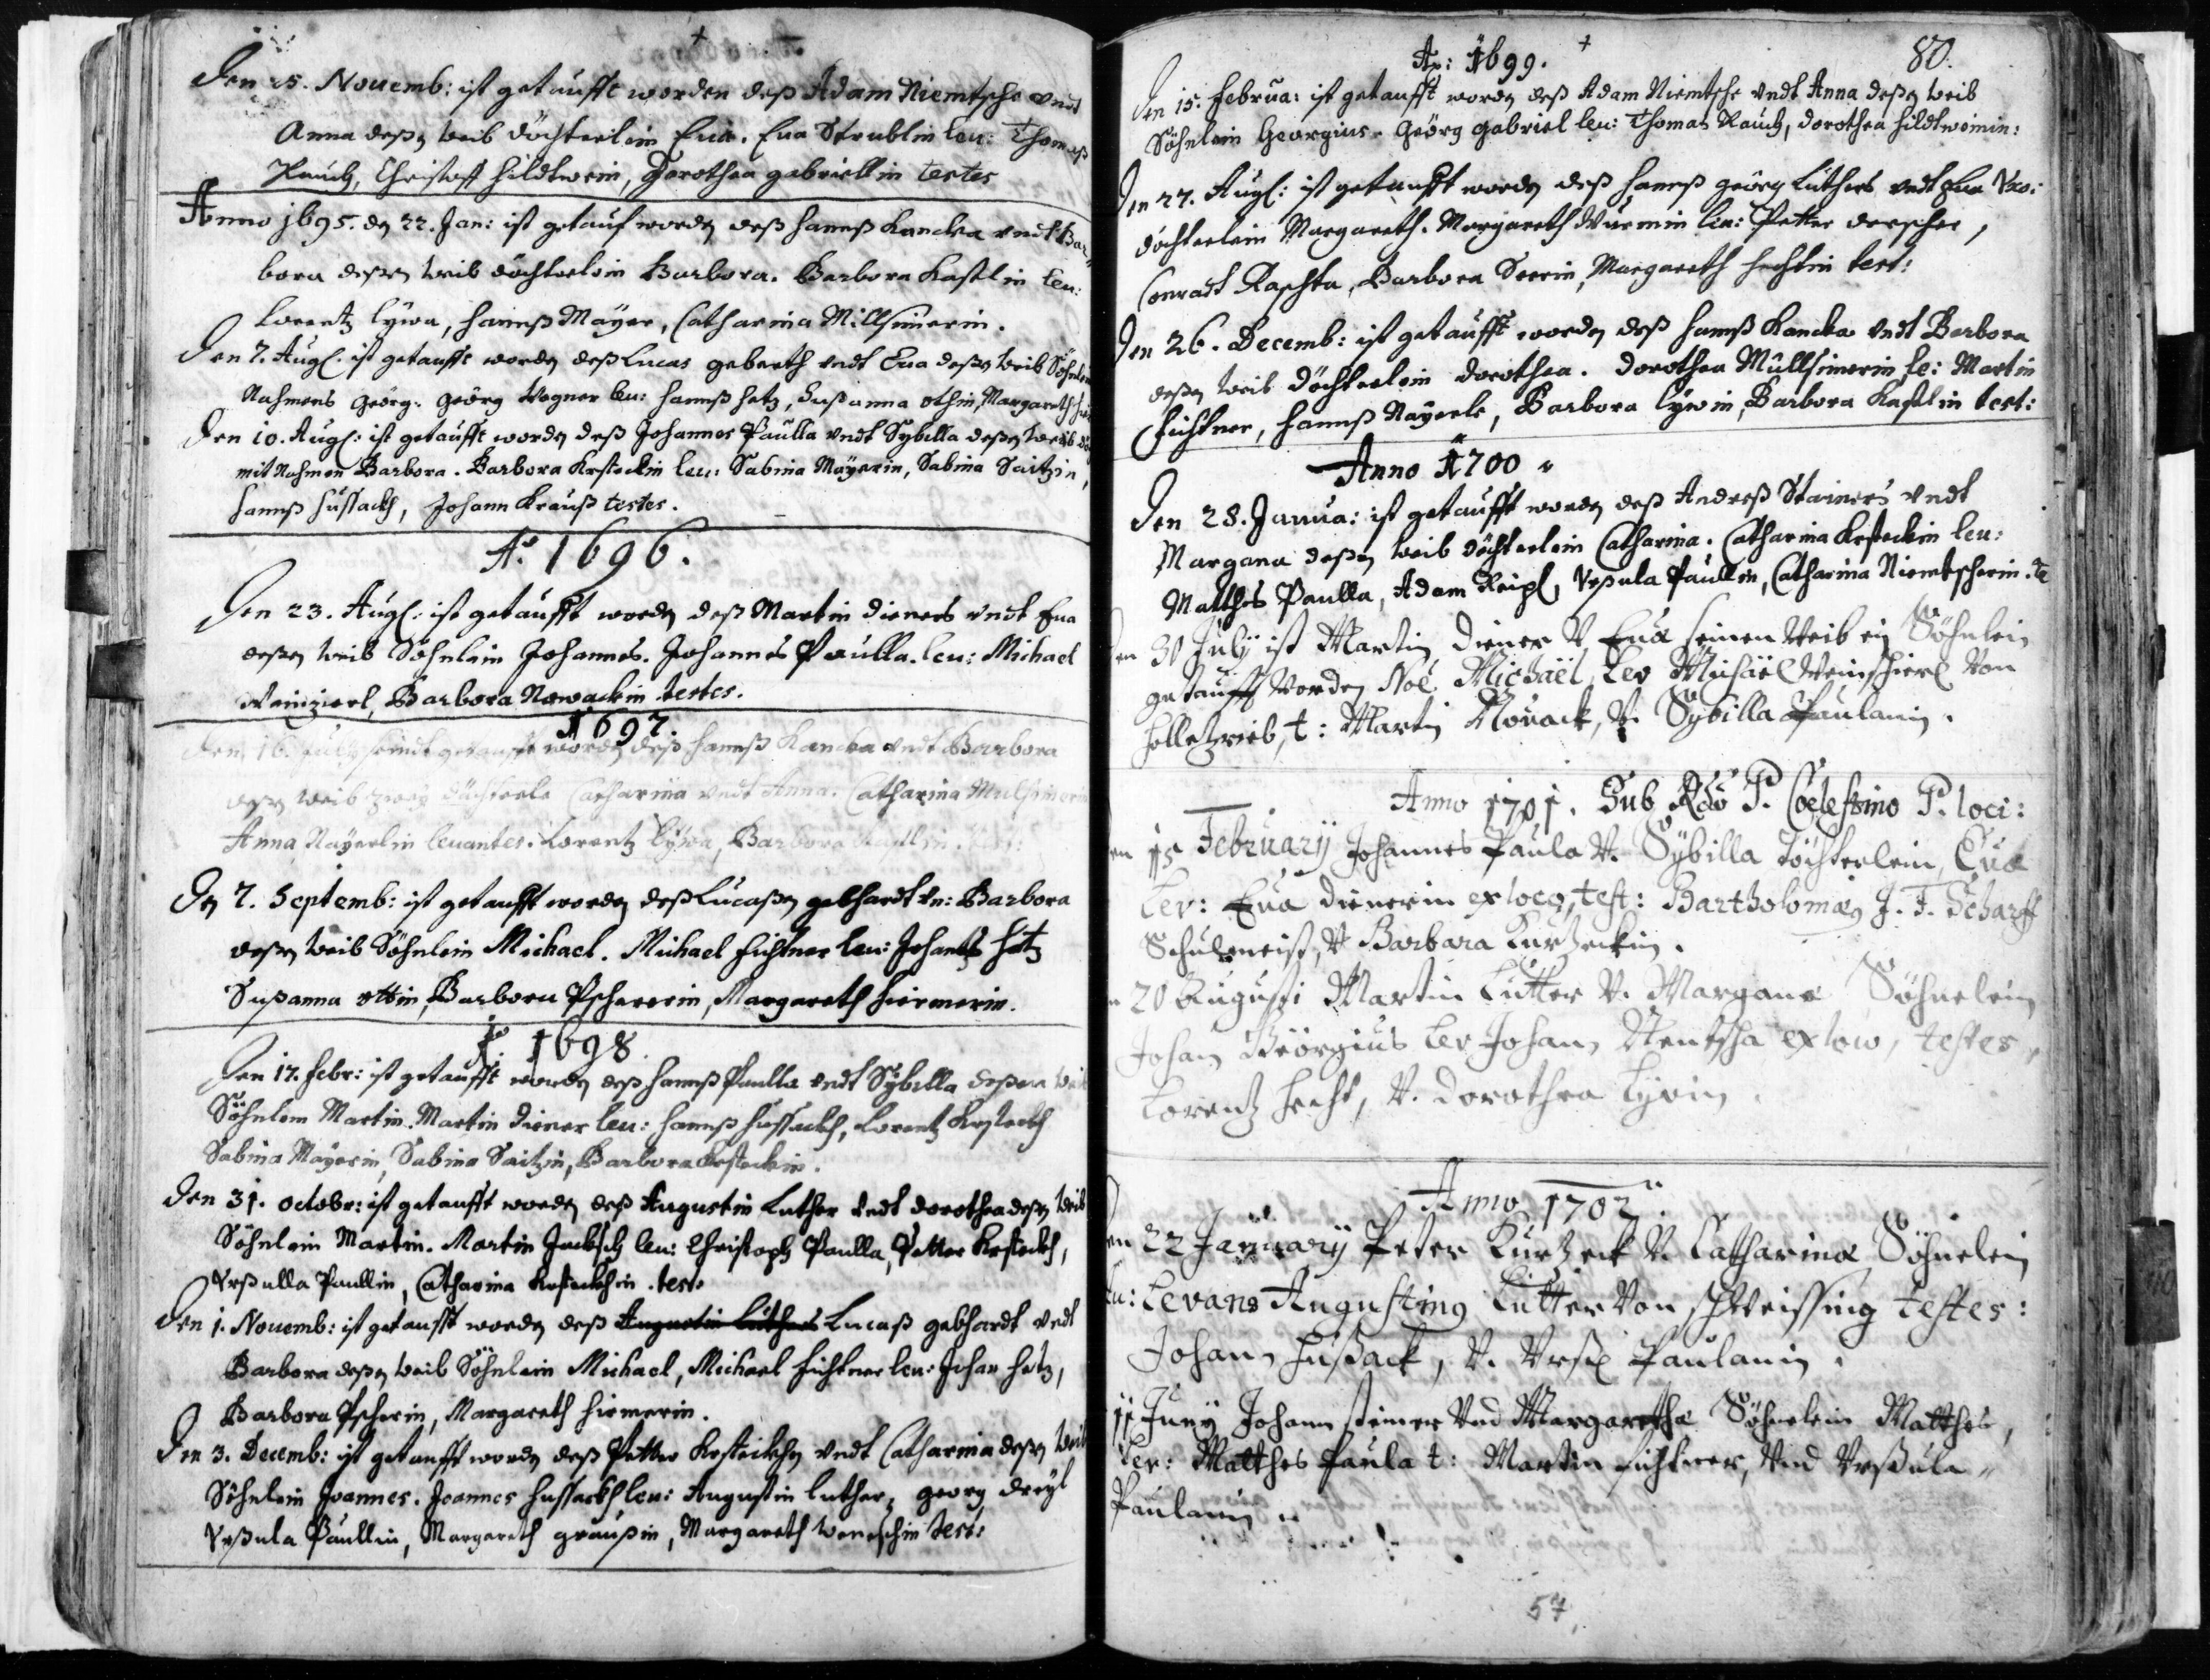 Den 25. Nouemb: ist getaufft worden deß Adam Niemtsche vndt
Anna deßen weib döchterlein Eua. Eua Strublin leu: Thomaß
Rauch, Christoff hildtwein, Dorothea gabriellin testes
Anno 1695. den 22. Jan: ist getauf worden deß hannß Kancka vndt Bar-
bora deßen weib döchterlein Barbora. Barbora Kastlin leu:
Lorentz lywa, hannß Mayer, Catharina Millsimerin.
Den 7. Aug: ist getaufft worden deß Lucas gebarth vndt Eua deßen weib Söhnlein
Nahmens Georg. Georg Wagner leu: hannß hatz, Sußanna othin, Margareth
Den 10. Aug: ist getaufft worden deß Johannes Paulla vndt Sybilla deßen weib
mit Nahmen Barbora. Barbora Krsteckin leu: Sabina Mayerin, Sabina Saitzin,
hannß hussackh, Johann Krauß testes.
Ao 1696.
Den 23. Aug: ist getaufft worden deß Martin dieners vndt Eua
deßen weib Söhnlein Johannes. Johannes Paulla. leu: Michael
Weinzierl, Barbora Nowackin testes.
1697.
Den 16. July seindt getaufft worden deß hannß Kancka vndt Barbora
deßen weib zwey döchterle Catharina vndt Anna. Catharina Mulsimerin
Anna Nayerlin leuantes. Lorentz lywa, Barbora Kastlin.
Den 7. Septemb: ist getaufft worden deß Lucaßen gebhardt vn: Barbora
deßen weib Söhnlein Michael. Michael fichtner leu: Johanes hatz
Sußanna ottin, Barbora Pscherin, Margareth hiermerin.
Ao 1698.
Den 17. febr: ist getaufft worden deß hannß Paulla vndt Sybilla deßen weib
Söhnlein Martin. Martin Diener leu: hannß hussackh, Lorentz Krsteckh
Sabina Mayerin, Sabina Saitzin, Barbora Krsteckin.
Den 31. octobr: ist getaufft worden deß Augustin Luther vndt dorothea deßen weib
Söhnlein Martin. Martin Jacksch leu: Christoph Paulla, Petter Krsteckh,
Vrßulla Paullin, Catharina Krsteckhin. test:
Den 1. Nouemb: ist getaufft worden deß Augustin Luthers Lucaß gebhardt vndt
Barbora deßen weib Söhnlein Michael, Michael fichtner leu: Johan hatz,
Barbora Pscherin, Margareth hirmerin.
Den 3. Decemb: ist getaufft worden deß Petter Krsteckhen vndt Catharina deßen weib
Söhnlein Joannes. Joannes hussackh leu: Augustin luther, georg
Vrßula Paullin, Margareth graußin, Margareth test:
Ao: 1699.
80.
Den 15. Februa: ist getaufft worden deß Adam Niemtsche vndt Anna deßen weib
Söhnlein Georgius. Geörg gabriel leu: Thomas Rauch, dorothea hildtweinin:
Den 27. Aug: ist getaufft worden deß hannß georg Luthers vndt Eua
döchterlein Margareth. Margareth Wurmin leu: Petter
Conradt Raschka, Barbora Seerin, Margareth hechtin test:
Den 26. Decemb: ist getaufft worden deß hannß Kancka vndt Barbora
deßen weib döchterlein dorothea. dorothea Müllsimerin le: Martin
fichtner, hannß Nayerle, Barbora lywin, Barbora Kastlin test:
Anno 1700
Den 28. Janua: ist getaufft worden deß Andreß Stainers vndt
Margana deßen weib döchterlein Catharina. Catharina Krsteckin leu:
Matthes Paulla, Adam Reipl, Vrßula Paullin, Catharina Niemtscherin. te
30 July ist Martin Diener V. Eua seinen Weib ein Söhnlein
getaufft Worden Noë Michaël, Lev Michäel Weinschierl Von
holletzrieb, t: Martin Nouack, V. Sybilla Paulanin.
Anno 1701. Sub Rdo P. Cœlestino P. loci:
15 February Johannes Paula V. Sybilla töchterlein, Eua
Lev: Eua dienerin ex loco, test: Bartholomæg J. F. Scharff
Schulmeist, V Barbara Kurtzeckin.
20 Augusti Martin Lutter V. Margana Söhnelein
Johan Geörgius Lev Johan Nentscha ex loco, testes,
Lorentz hecht, V. dorothea Lyvin
Anno 1702
22 January Peter Kurtzeck V. Catharina Söhnelein
Levans Augusting Lutter Von schweissing testes:
Johan hußack, V. Vrsl Paulanin.
11 Juny Johann steiner Vnd Margaretha Söhnelein Matthes,
Lev: Matthes Paula t: Martin fichtner, Vnd Vrßula
Paulanin
57